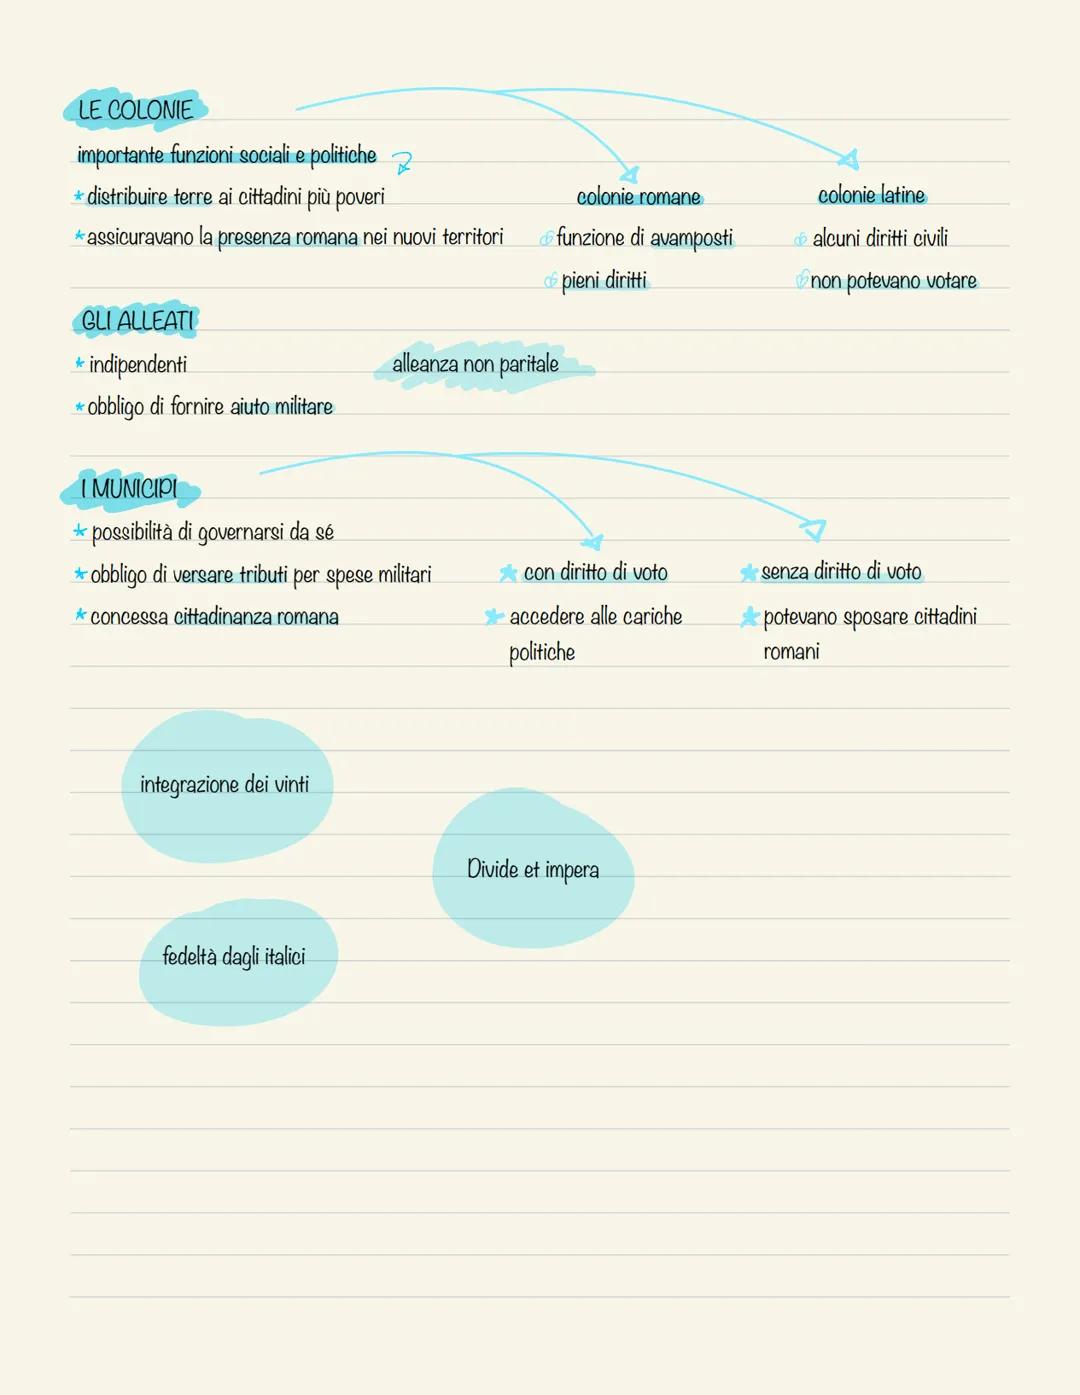 LE COLONIE
importante funzioni sociali e politiche
distribuire terre ai cittadini più poveri
assicuravano la presenza romana nei nuovi territori
colonie romane
funzione di avamposti
pieni diritti
colonie latine
alcuni diritti civili
non potevano votare
GLI ALLEATI
indipendenti
obbligo di fornire aiuto militare
alleanza non paritale
I MUNICIPI
possibilità di governarsi da sé
obbligo di versare tributi per spese militari
concessa cittadinanza romana
con diritto di voto
accedere alle cariche
politiche
senza diritto di voto
potevano sposare cittadini
romani
integrazione dei vinti
Divide et impera
fedeltà dagli italici